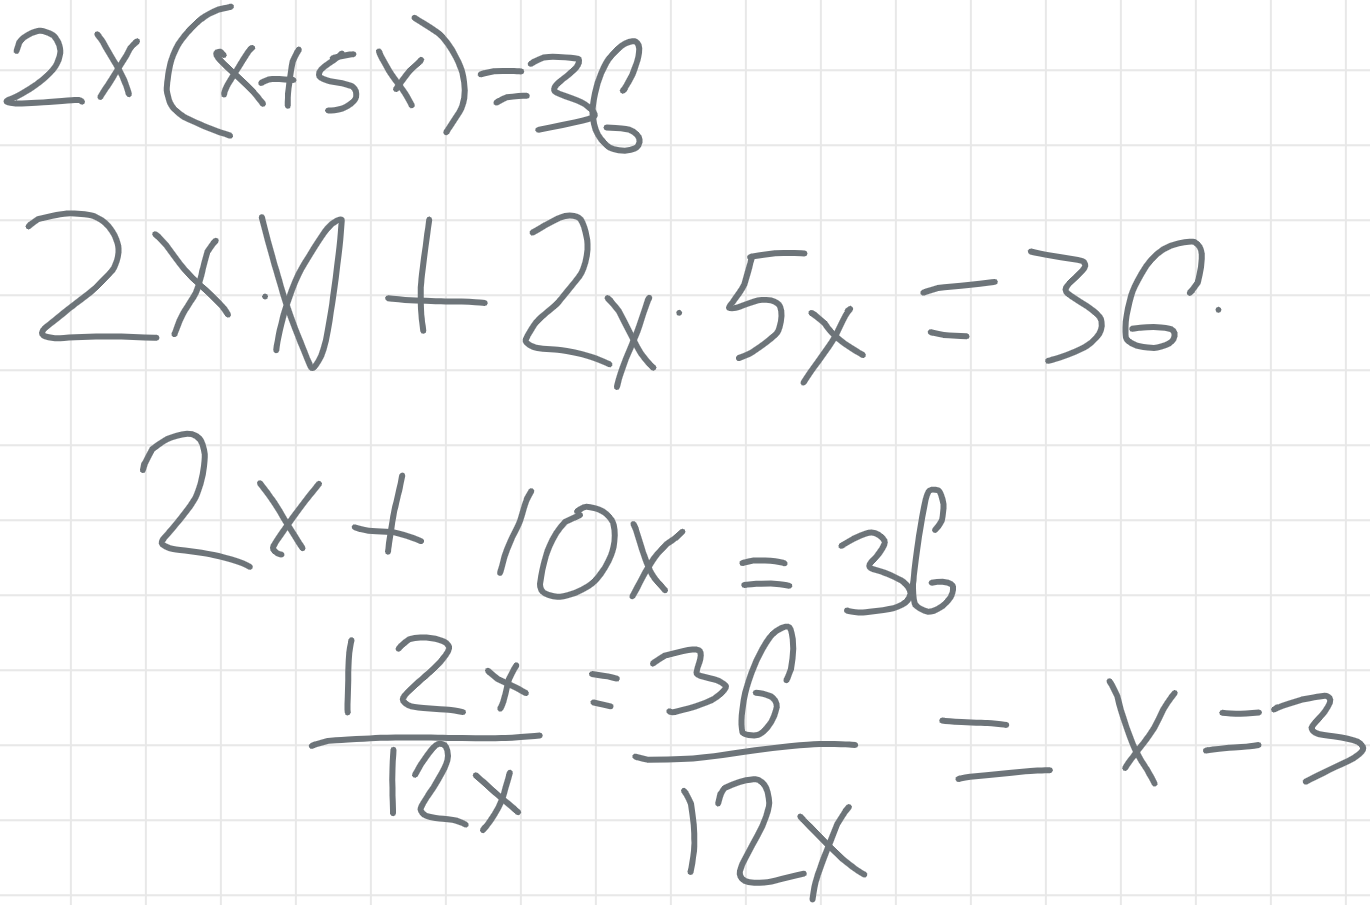 2x(x+5x)=36
2x·x+2x·5x=36.
2x+10x=36
12x/12x=36/12x = x=3